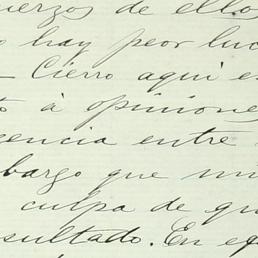 uerzos de ellos
o hay peor luc
— Cierro aqui es
to à opiniones
gencia entre
bargo que mi
culpa de qu
sultado. En eq